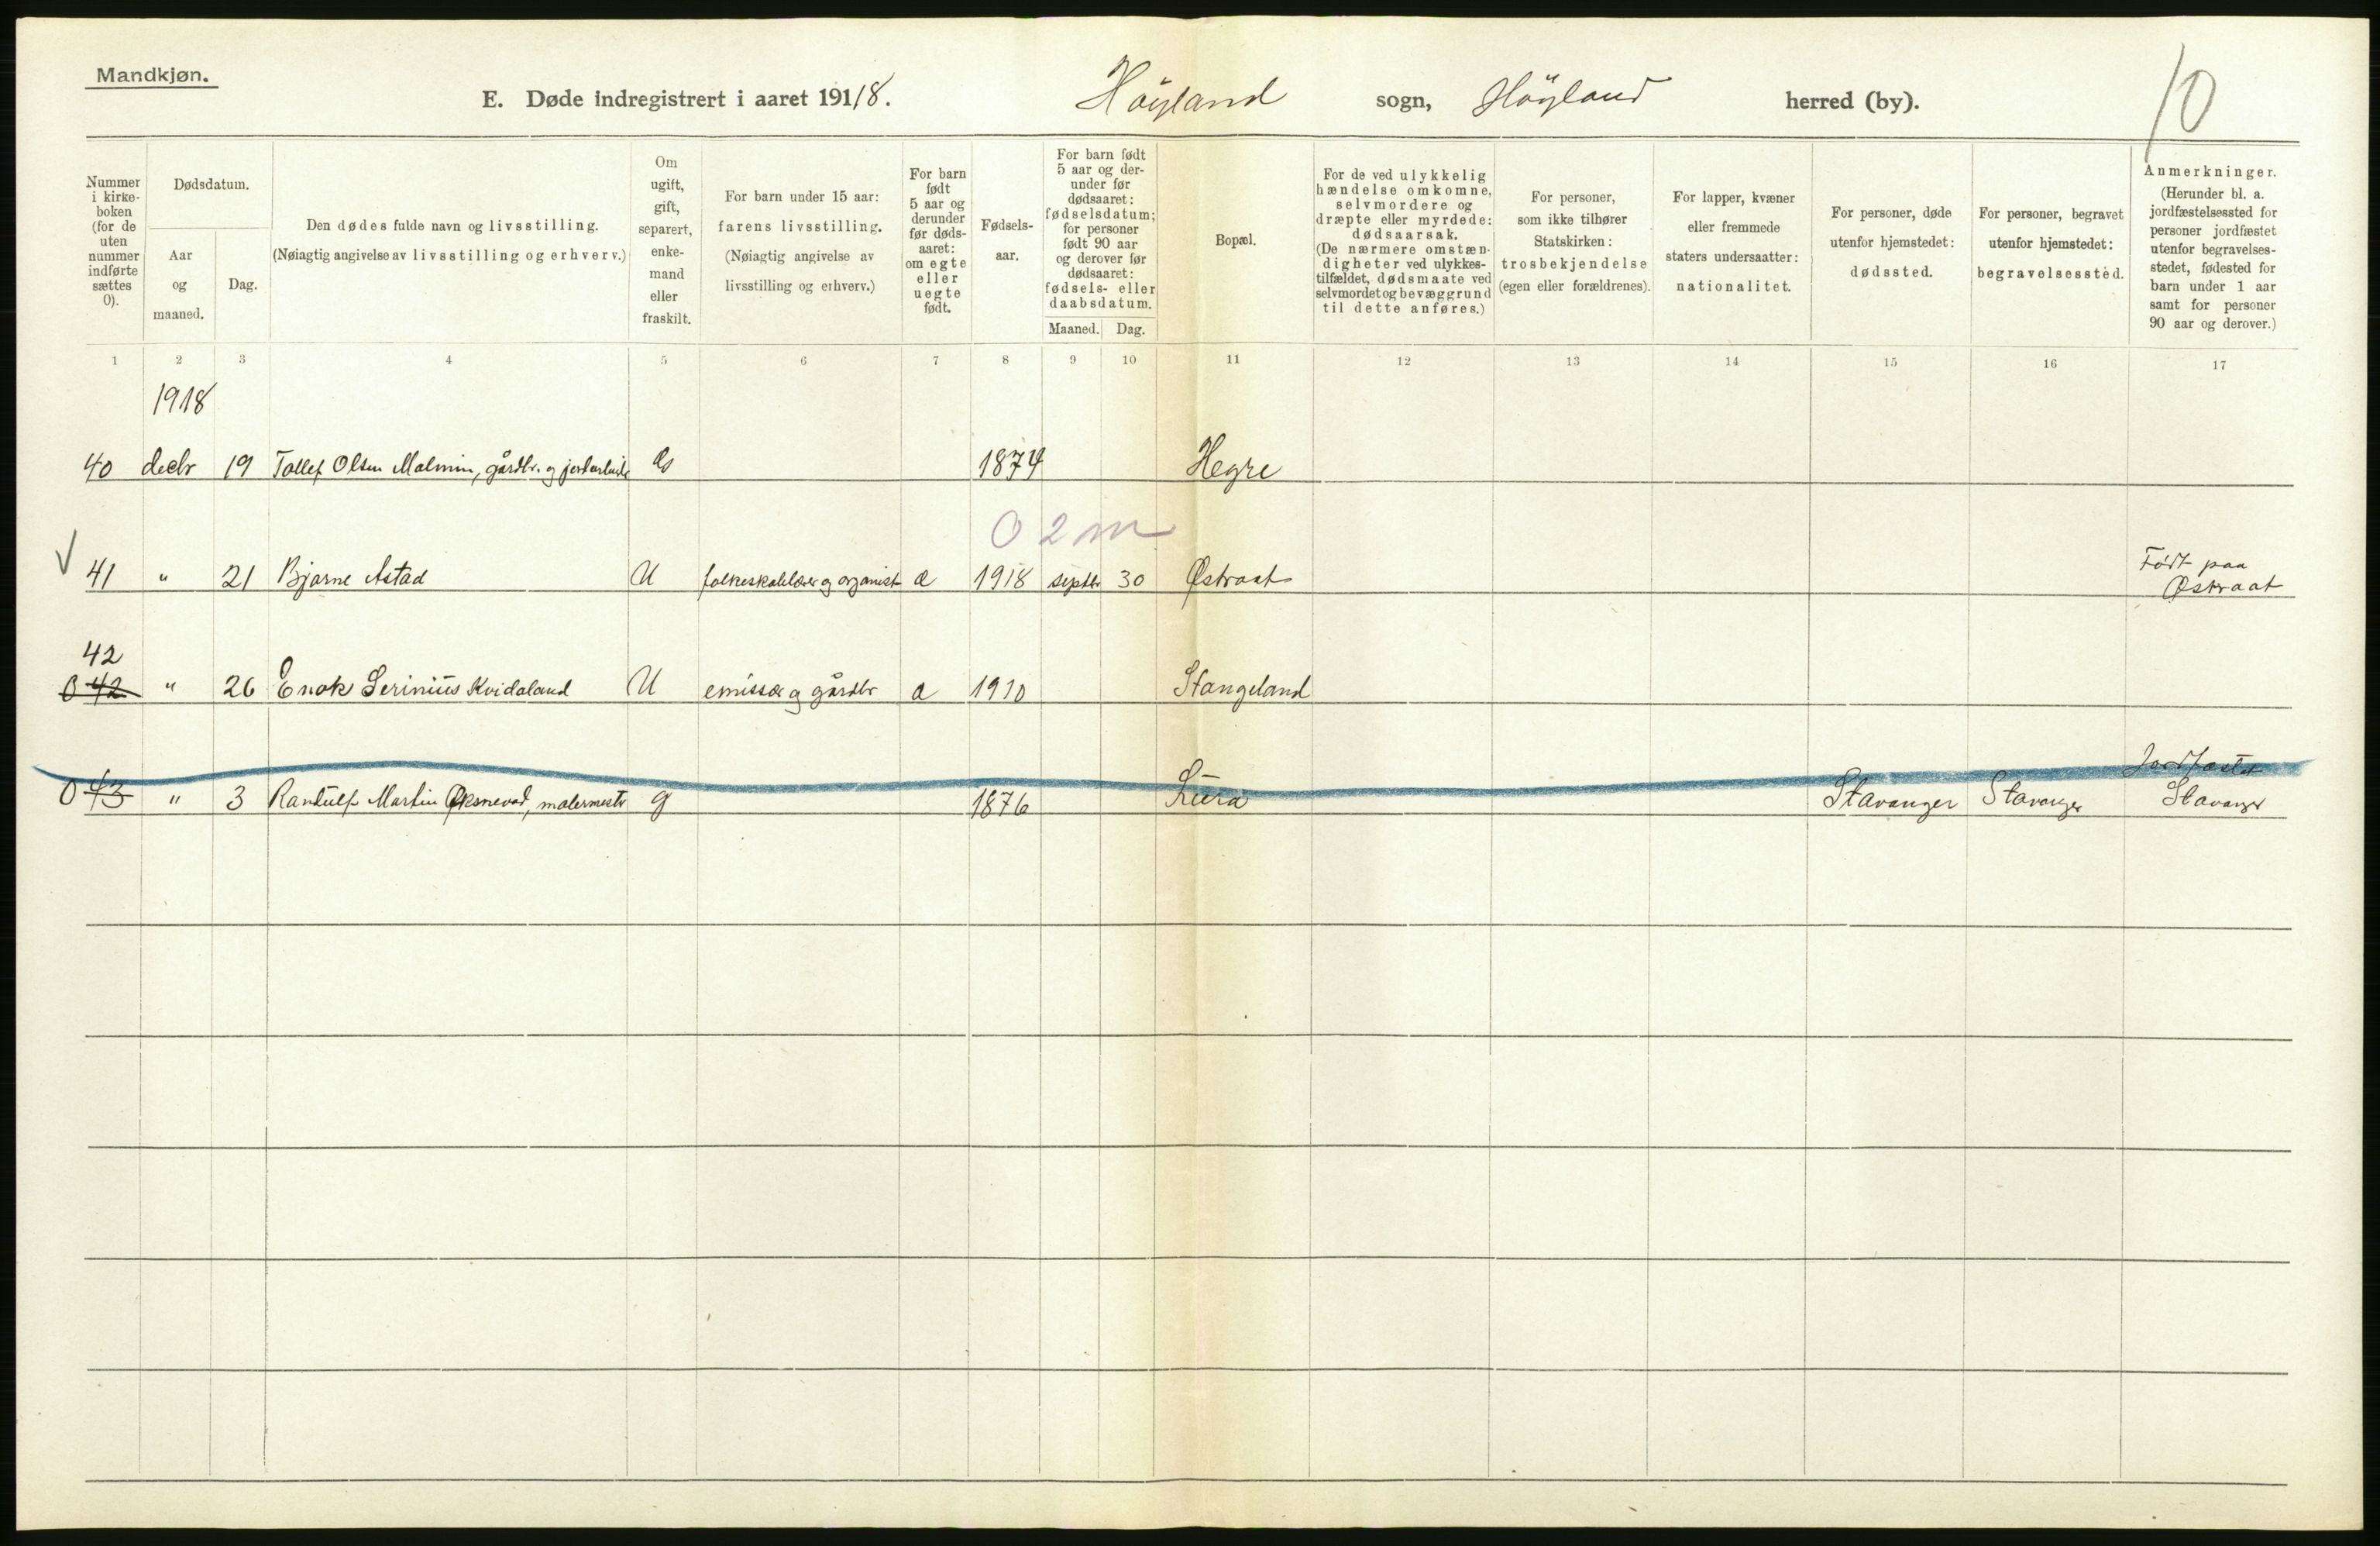 Mandkjøn.
E. Døde indregistrert i aaret 1918. Höyland sogn, Höyland herred (by).
10
Nummer
i kirke-
boken
(for de
uten
nummer
indførte
sættes
0).
Dødsdatum.
Aar
og
maaned.
Dag.
Den dødes fulde navn og livsstilling.
(Nøiagtig angivelse av livsstilling og erhverv.)
Om
ugift,
gift,
separert,
enke-
mand
eller
fraskilt.
For barn under 15 aar:
farens livsstilling.
(Nøiagtig angivelse av
livsstilling og erhverv.)
For barn
født
5 aar og
derunder
før døds-
aaret:
om egte
eller
uegte
født.
Fødsels-
aar.
For barn født
5 aar og der-
under før
dødsaaret:
fødselsdatum;
for personer
født 90 aar
og derover før
dødsaaret:
fødsels- eller
daabsdatum.
Maaned. Dag.
Bopæl.
For de ved ulykkelig
hændelse omkomne,
selvmordere og
dræpte eller myrdede:
dødsaarsak.
(De nærmere omstæn-
digheter ved ulykkes-
tilfældet, dødsmaate ved
selvmordet og bevæggrund
til dette anføres.)
For personer,
som ikke tilhører
Statskirken:
trosbekjendelse
(egen eller forældrenes).
For lapper, kvæner
eller fremmede
staters undersaatter:
nationalitet.
For personer, døde
utenfor hjemstedet:
dødssted.
For personer, begravet
utenfor hjemstedet:
begravelsessted.
Anmerkninger.
(Herunder bl. a.
jordfæstelsessted for
personer jordfæstet
utenfor begravelses-
stedet, fødested for
barn under 1 aar
samt for personer
90 aar og derover.)
1 2 3 4 5 6 7 8 9 10 11 12 13 14 15 16 17
1918
40 decbr 19 Tollef Olsen Malmin, gårdbr. og jordarbeider G 1874 Hegre
0 2 m
√ 41 " 21 Bjarne Astad U folkeskolelærer og organist a 1918 septbr 30 Østraat Födt paa
Østraat
42
0 42 " 26 Enok Serinius Kvidaland U emissær og gårdbr a 1910 Stangeland
0 43 " 3 Randulf Martin Øksnevad, malermestr g 1876 Lura Stavanger Stavanger Jordfæstet
Stavanger